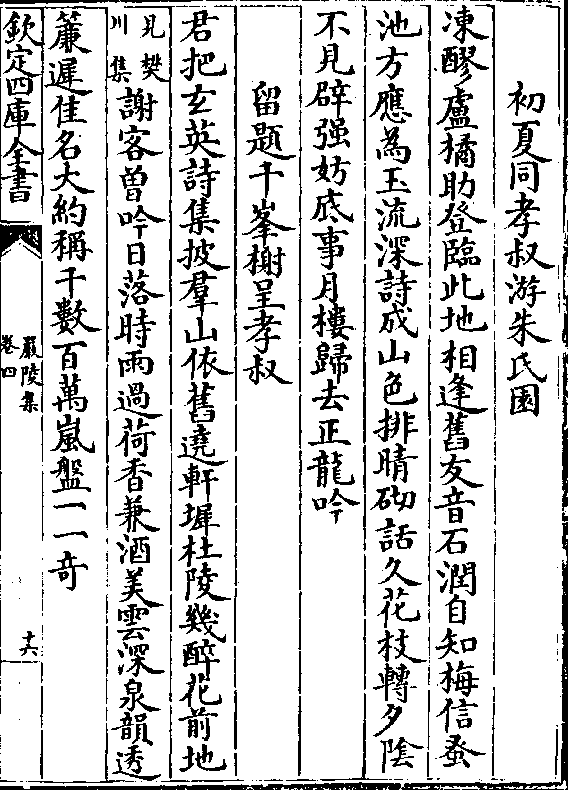 初夏同孝叔游朱氏園
凍醪盧橘助登臨此地相逢舊友音石潤自知梅信蚤
池方應為玉流深詩成山色排晴砌話久花枝轉夕陰
不見辟强妨底事月樓歸去正龍吟
留題千峯榭呈孝叔
君把玄英詩集披羣山依舊遶軒墀杜陵幾醉花前地
見樊川集謝客曽吟日落時雨過荷香兼酒美雲深泉韻透
簾遲佳名大約稱千數百萬嵐盤一一奇
欽定四庫全書
嚴陵集
卷四
十六